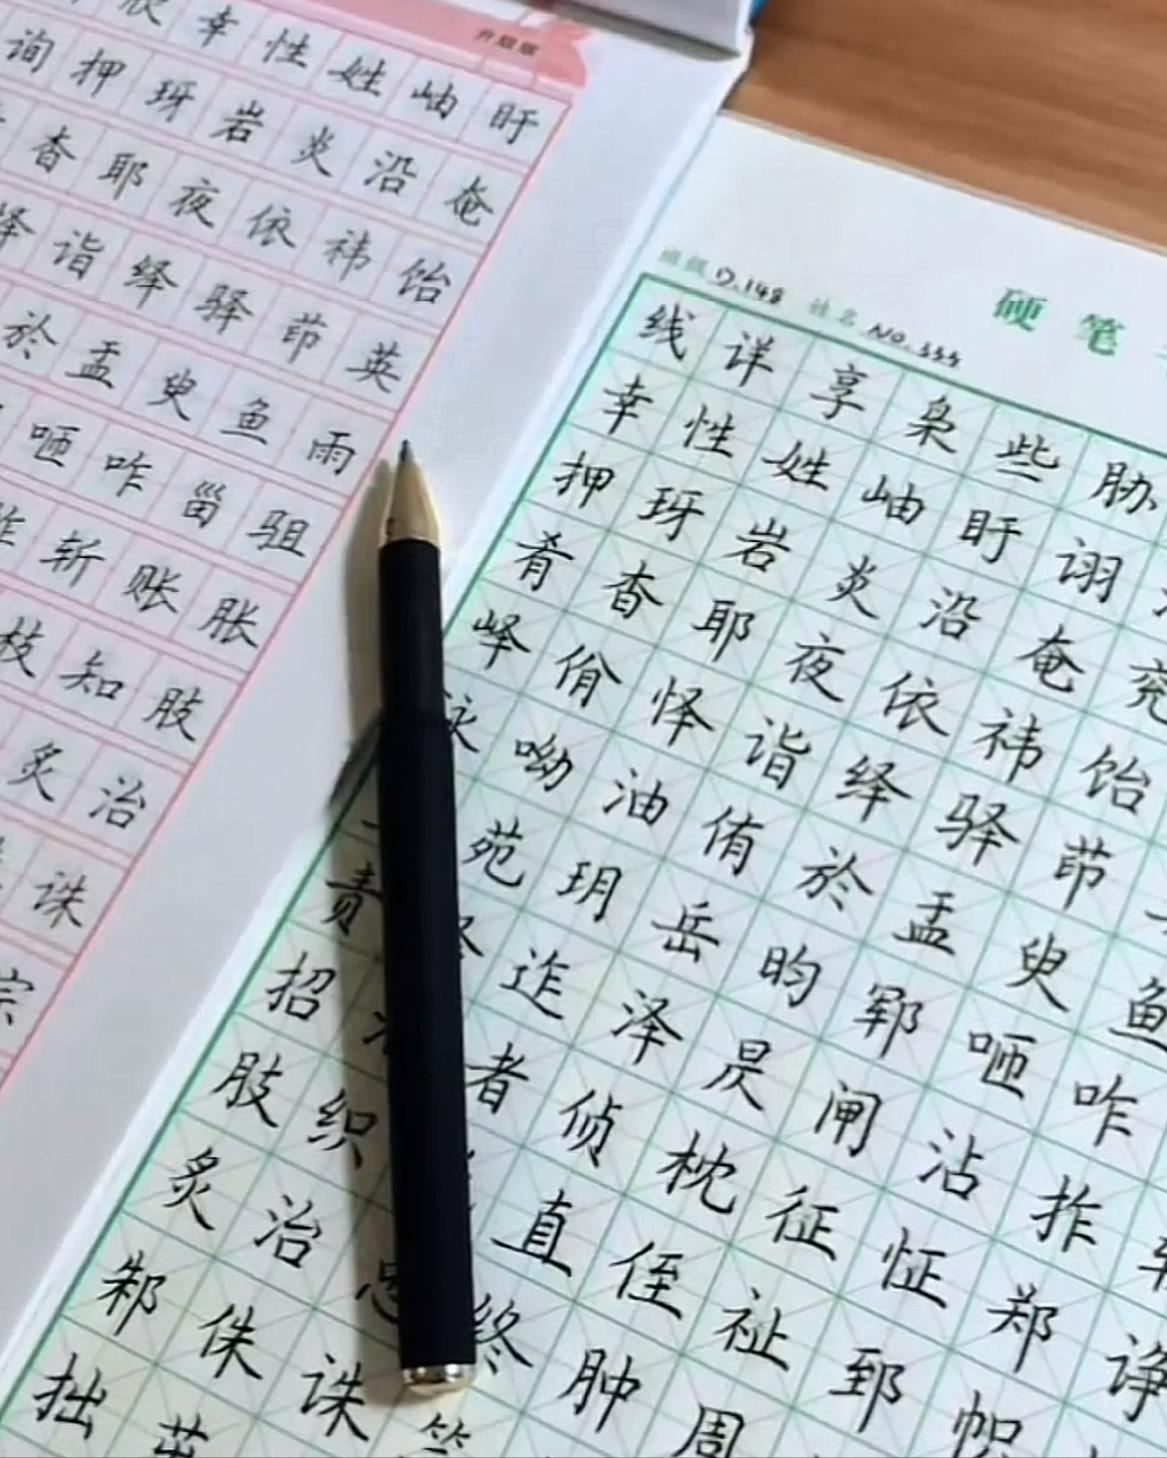 欣幸性姓岫盱
询押玡岩炎沿奄
杳耶夜依祎饴
怿诣绎驿茚英
於盂臾鱼雨
咂咋甾驵
斩账胀
枝知肢
炙治
诛
宗
升级版
硬笔
班级 D.148 姓名 NO.555
线详享枭些胁
幸性姓岫盱诩
押玡岩炎沿奄兖
肴杳耶夜依祎饴
峄佾怿诣绎驿茚
泳呦油侑於盂臾鱼
苑玥岳昀郓咂咋
责迮泽昃闸沾拃
招者侦枕征怔郑诤
肢织直侄祉郅帜
炙治忠终肿周
邾侏诛
拙茁